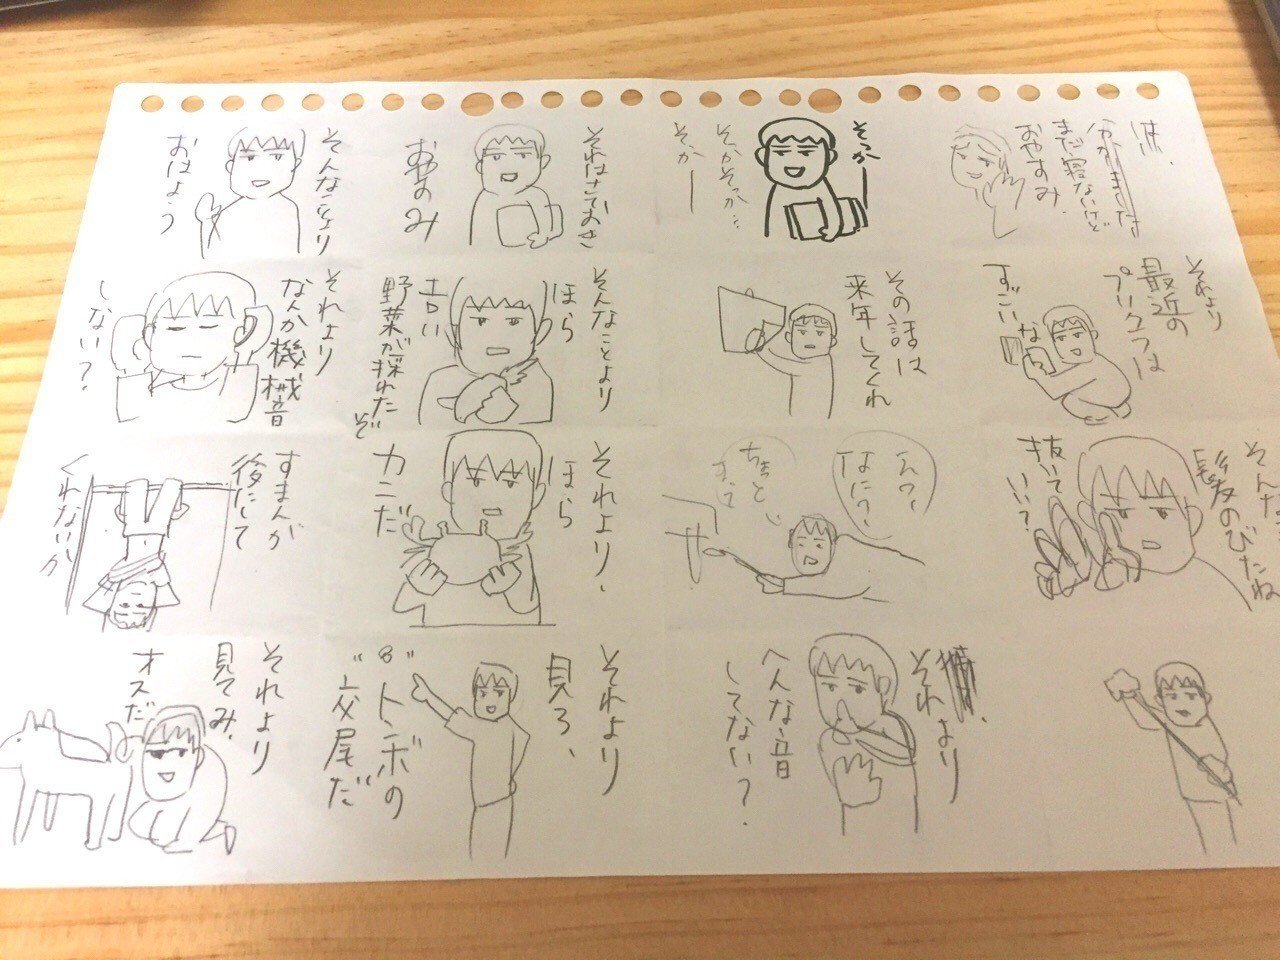 はい、
分かりました
まだ寝ないけど
おやすみ
そっかー
そかそっか…
そかー
それはさておき
おやのみ
そんなことより
おはよう
それより
最近の
プリクラは
すごいな
その話は
来年してくれ
そんなことより
ほら
エロい
野菜が採れたぞ
それより
なんか機械音
しない？
髪のびたね
抜いていい？
なに？
ちょっと
まって
それより、
ほら
カニだ
すまんが
後にして
くれないか
それより
へんな音
してない？
それより
見ろ、
トンボの
"交尾だ"
それより
見てみ、
オスだ